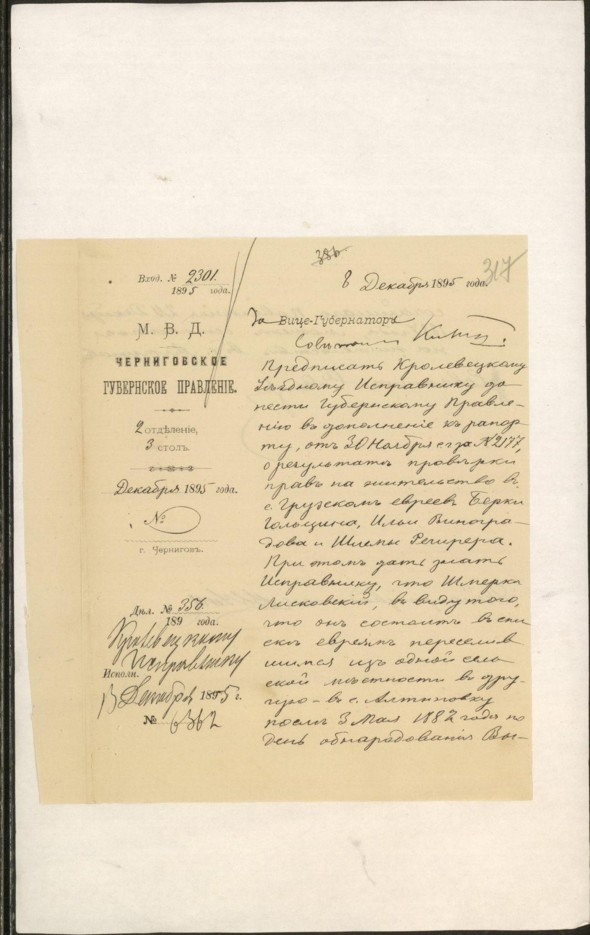 386
317
Вход. № 2301
1895 года.
М. В. Д.
ЧЕРНИГОВСКОЕ
ГУБЕРНСКОЕ ПРАВЛЕНІЕ.
2 отдѣленіе,
3 столъ.
Декабря 1895 года.
№
г. Черниговъ.
Дѣл. № 356
189 года.
Кролевецкому
Исправнику
Исполн.
13 Декабря 1895 г.
№ 6362
8 Декабря 1895 года.
За Вице-Губернатора
Совѣтникъ
Предписать Кролевецкому
Уѣздному Исправнику до
нести Губернскому Правле-
нію въ дополненіе къ рапор
ту, отъ 30 Ноября с г за № 2177,
о результатѣ провѣрки
правъ на жительство въ
с. Грузскомъ евреевъ Берки
Гольцина, Ильи Виногра-
дова и Шлемы
При томъ дать знать
Исправнику, что Шмерка
Лисковскій, въ виду того,
что онъ состоитъ въ спи
скѣ евреямъ переселив
шимся изъ одной сель
ской мѣстности въ дру-
гую - въ с. Алтыновку
послѣ 3 Мая 1882 года по
день обнародованія Вы-